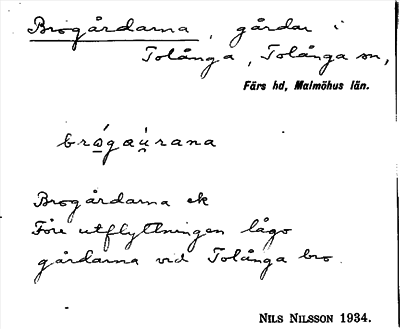 Brogårdarna, gårdar i
Tolånga, Tolånga sn,
Färs hd, Malmöhus län.
brǫ́gaú̯rana
Brogårdarna ek
Före utflyttningen lågo
gårdarna vid Tolånga bro.
NILS NILSSON 1934.